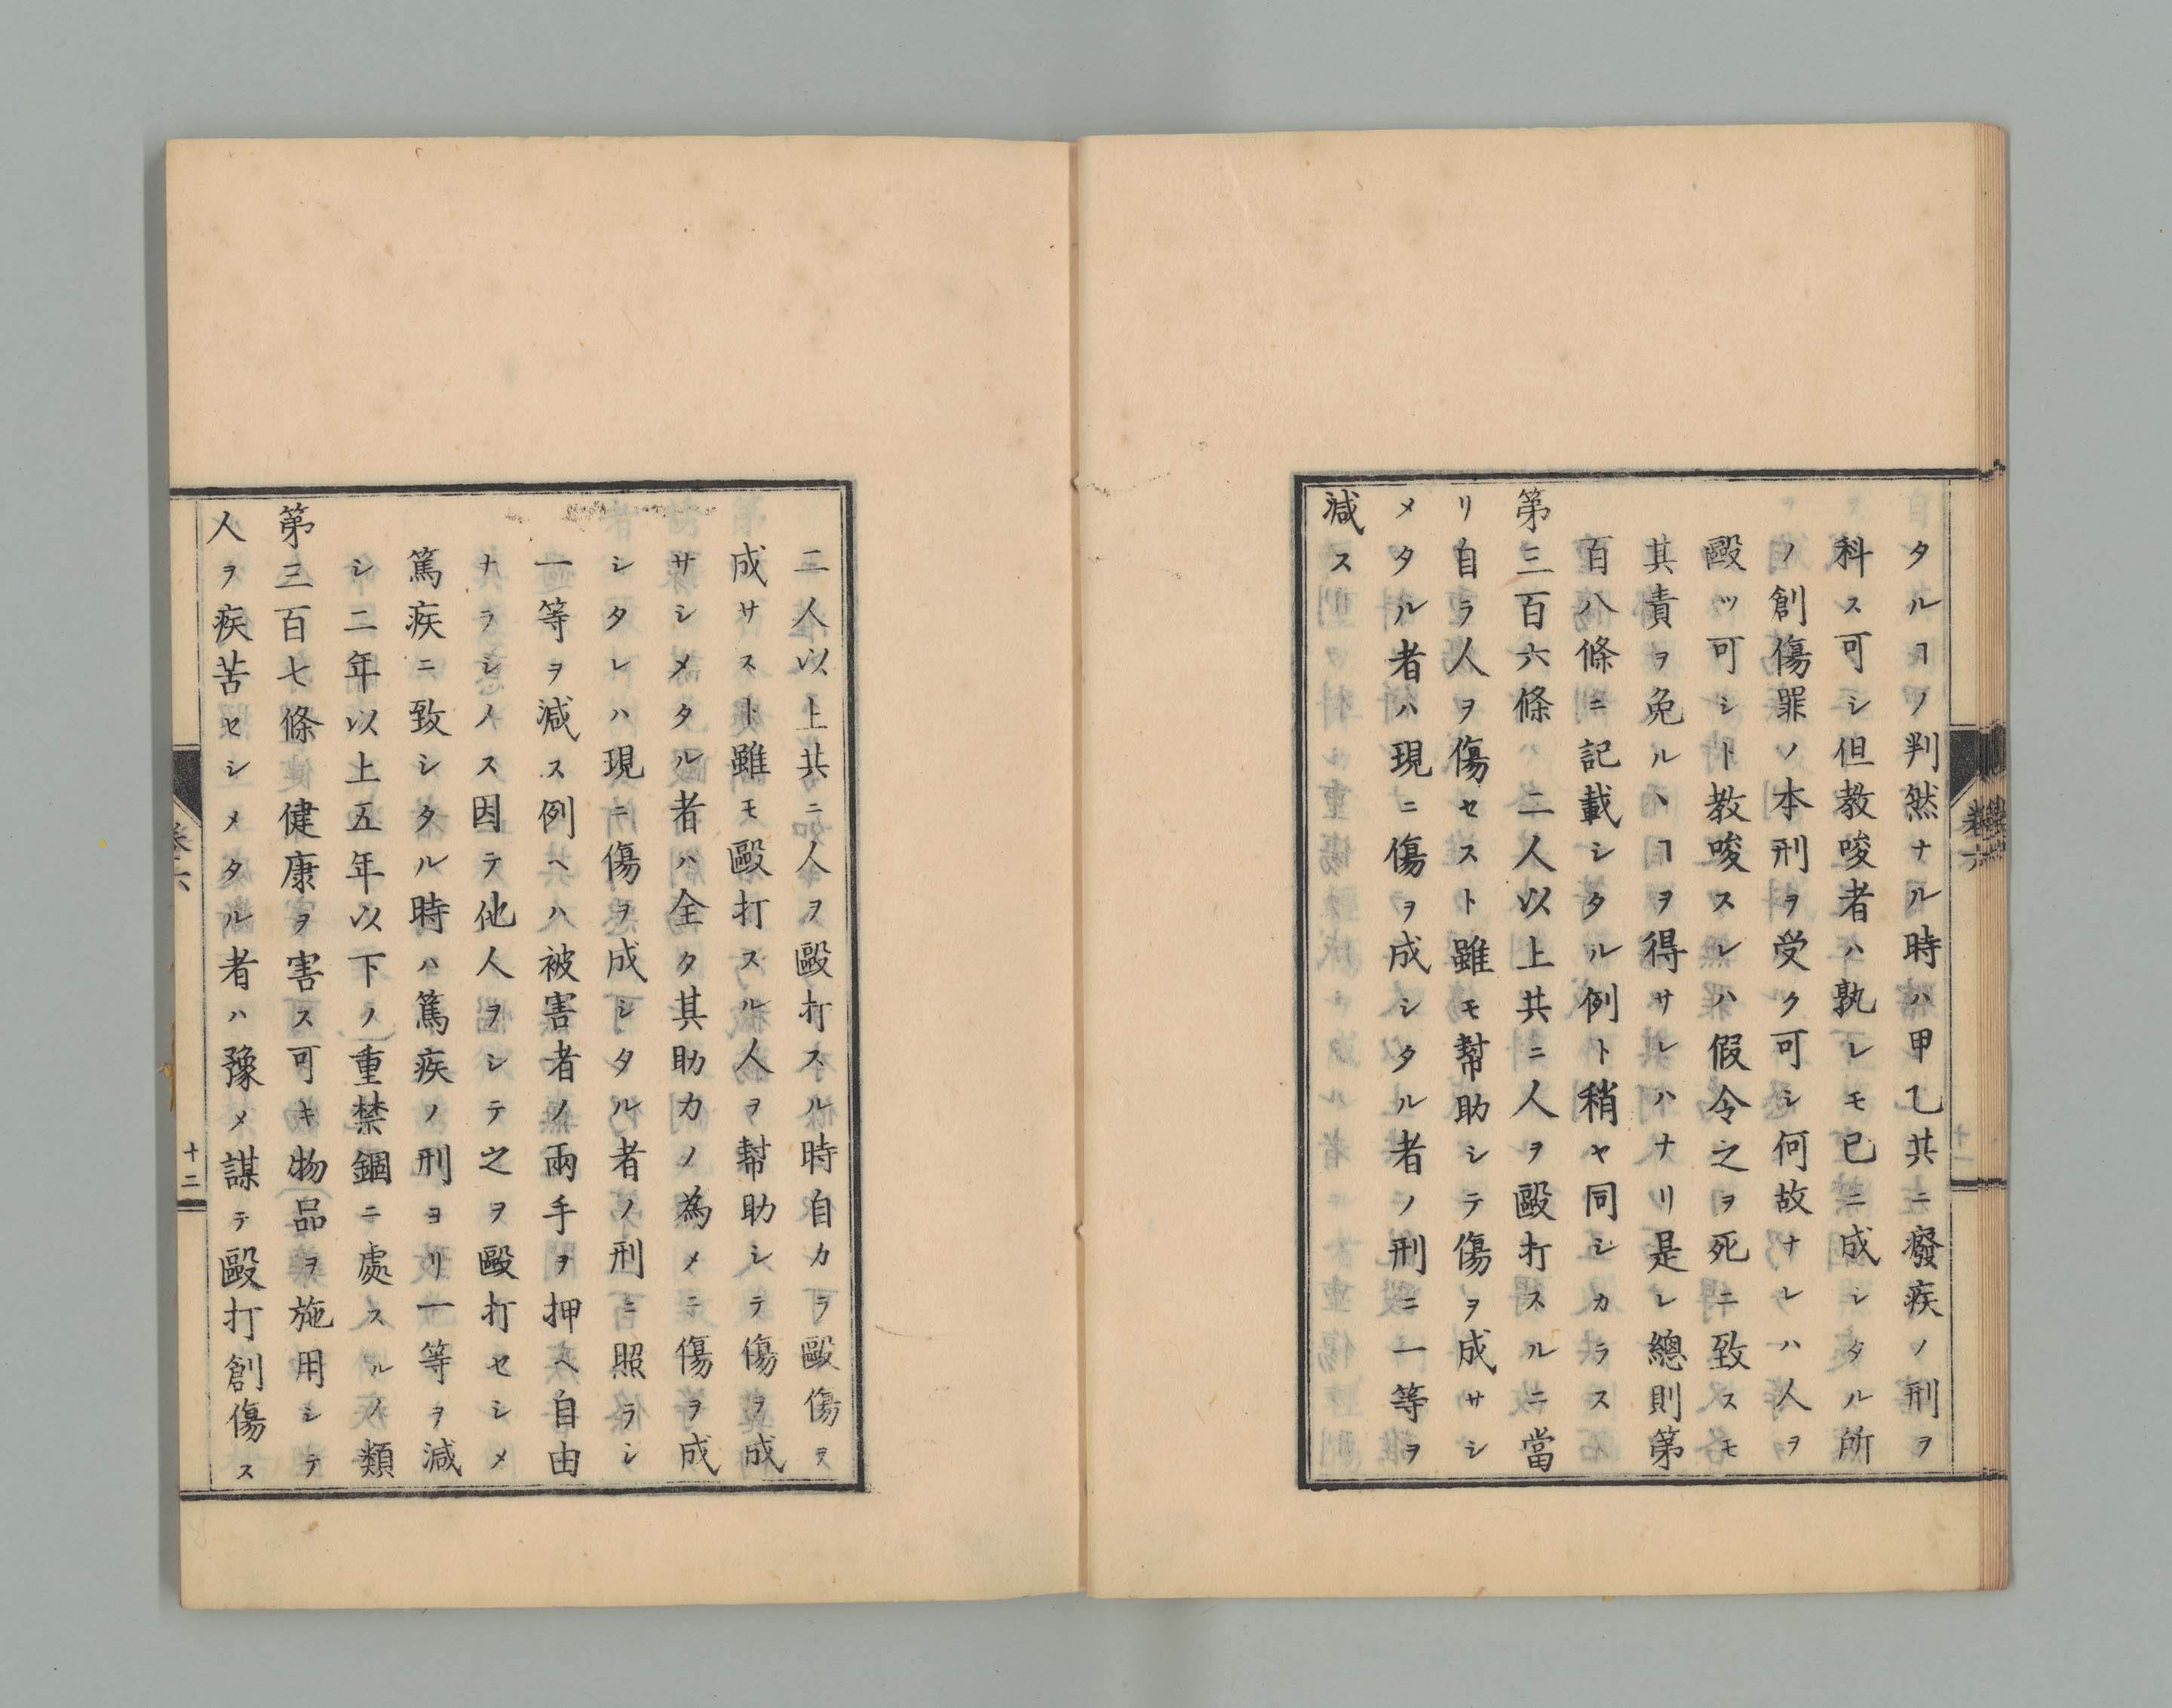 タルヿノ判然ナル時ハ甲乙共ニ癈疾ノ刑ヲ
科ス可シ但教唆者ハ孰レモ已ニ成シタル所
ノ創傷罪ノ本刑ヲ受ク可シ何故ナレハ人ヲ
毆ッ可シト教唆スレハ假令之ヲ死ニ致スモ
其責ヲ免ルヽヿヲ得サレハナリ是レ總則第
百八條ニ記載シタル例ト稍ヤ同シカラス
第三百六條ハ二人以上共ニ人ヲ毆打スルニ當
リ自ラ人ヲ傷セスト雖モ幇助シテ傷ヲ成サシ
メタル者ハ現ニ傷ヲ成シタル者ノ刑ニ一等ヲ
減ス
二人以上共ニ人ヲ毆打スル時自カラ毆傷ヲ
成サスト雖モ毆打スル人ヲ幇助シテ傷ヲ成
サシメタル者ハ全タ其助力ノ為メニ傷ヲ成
シタレハ現ニ傷ヲ成シタル者ノ刑ニ照ラシ
一等ヲ減ス例ヘハ被害者ノ兩手ヲ押ヘ自由
ナラシメス因テ他人ヲシテ之ヲ毆打セシメ
篤疾ニ致シタル時ハ篤疾ノ刑ヨリ一等ヲ減
シ二年以上五年以下ノ重禁錮ニ處スルノ類
第三百七條 健康ヲ害ス可キ物品ヲ施用シテ
人ヲ疾苦セシメタル者ハ豫メ謀テ毆打創傷ス
十二